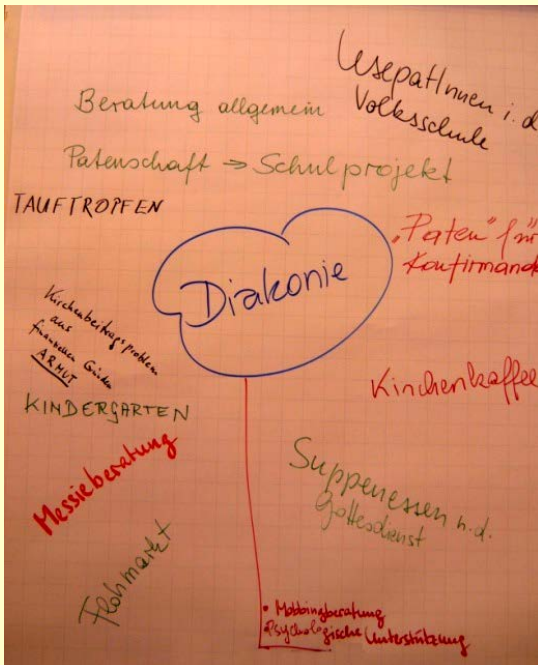 LesepatInnen i. d.
Volksschule
Beratung allgemein
Patenschaft → Schulprojekt
TAUFTROPFEN
"Paten" für
Konfirmand
Diakonie
Kirchenbeitragsproblem
aus
finanziellen
ARMUT
KINDERGARTEN
Kirchenkaffee
Messieberatung
Suppenessen n.d.
Gottesdienst
Flohmarkt
• Mobbingberatung
Psychologische Unterstützung